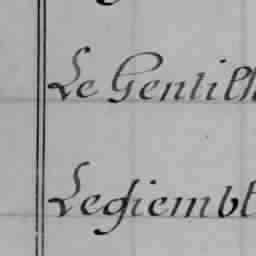 Le Gentilh
Legiembl